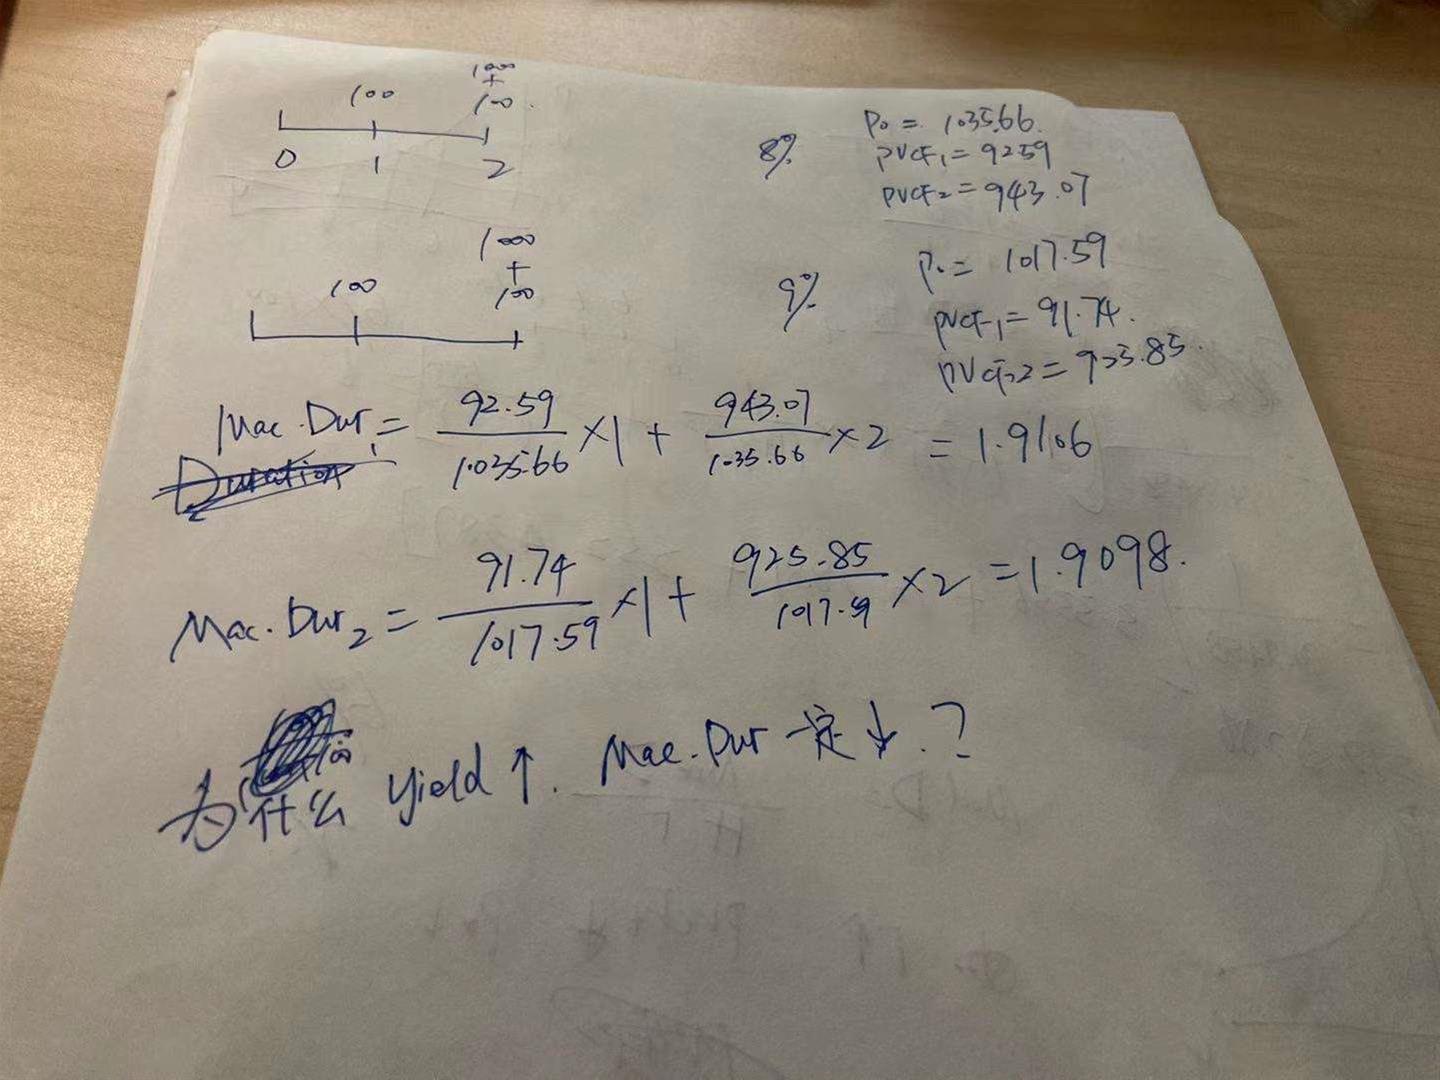 1000
+
100 100.
0 1 2
8% P₀ = 1035.66.
PVCF₁ = 92.59
PVCF₂ = 943.07
1000
+
100 100
9% P₀ = 1017.59
PVCF₁ = 91.74.
PVCF₂ = 925.85.
Mac.Dur₁ = 92.59/1035.66 ×1 + 943.07/1035.66 ×2 = 1.9106
Duration
Mac.Dur₂ = 91.74/1017.59 ×1 + 925.85/1017.59 ×2 = 1.9098.
为什么 yield ↑. Mac.Dur 一定 ↓.?